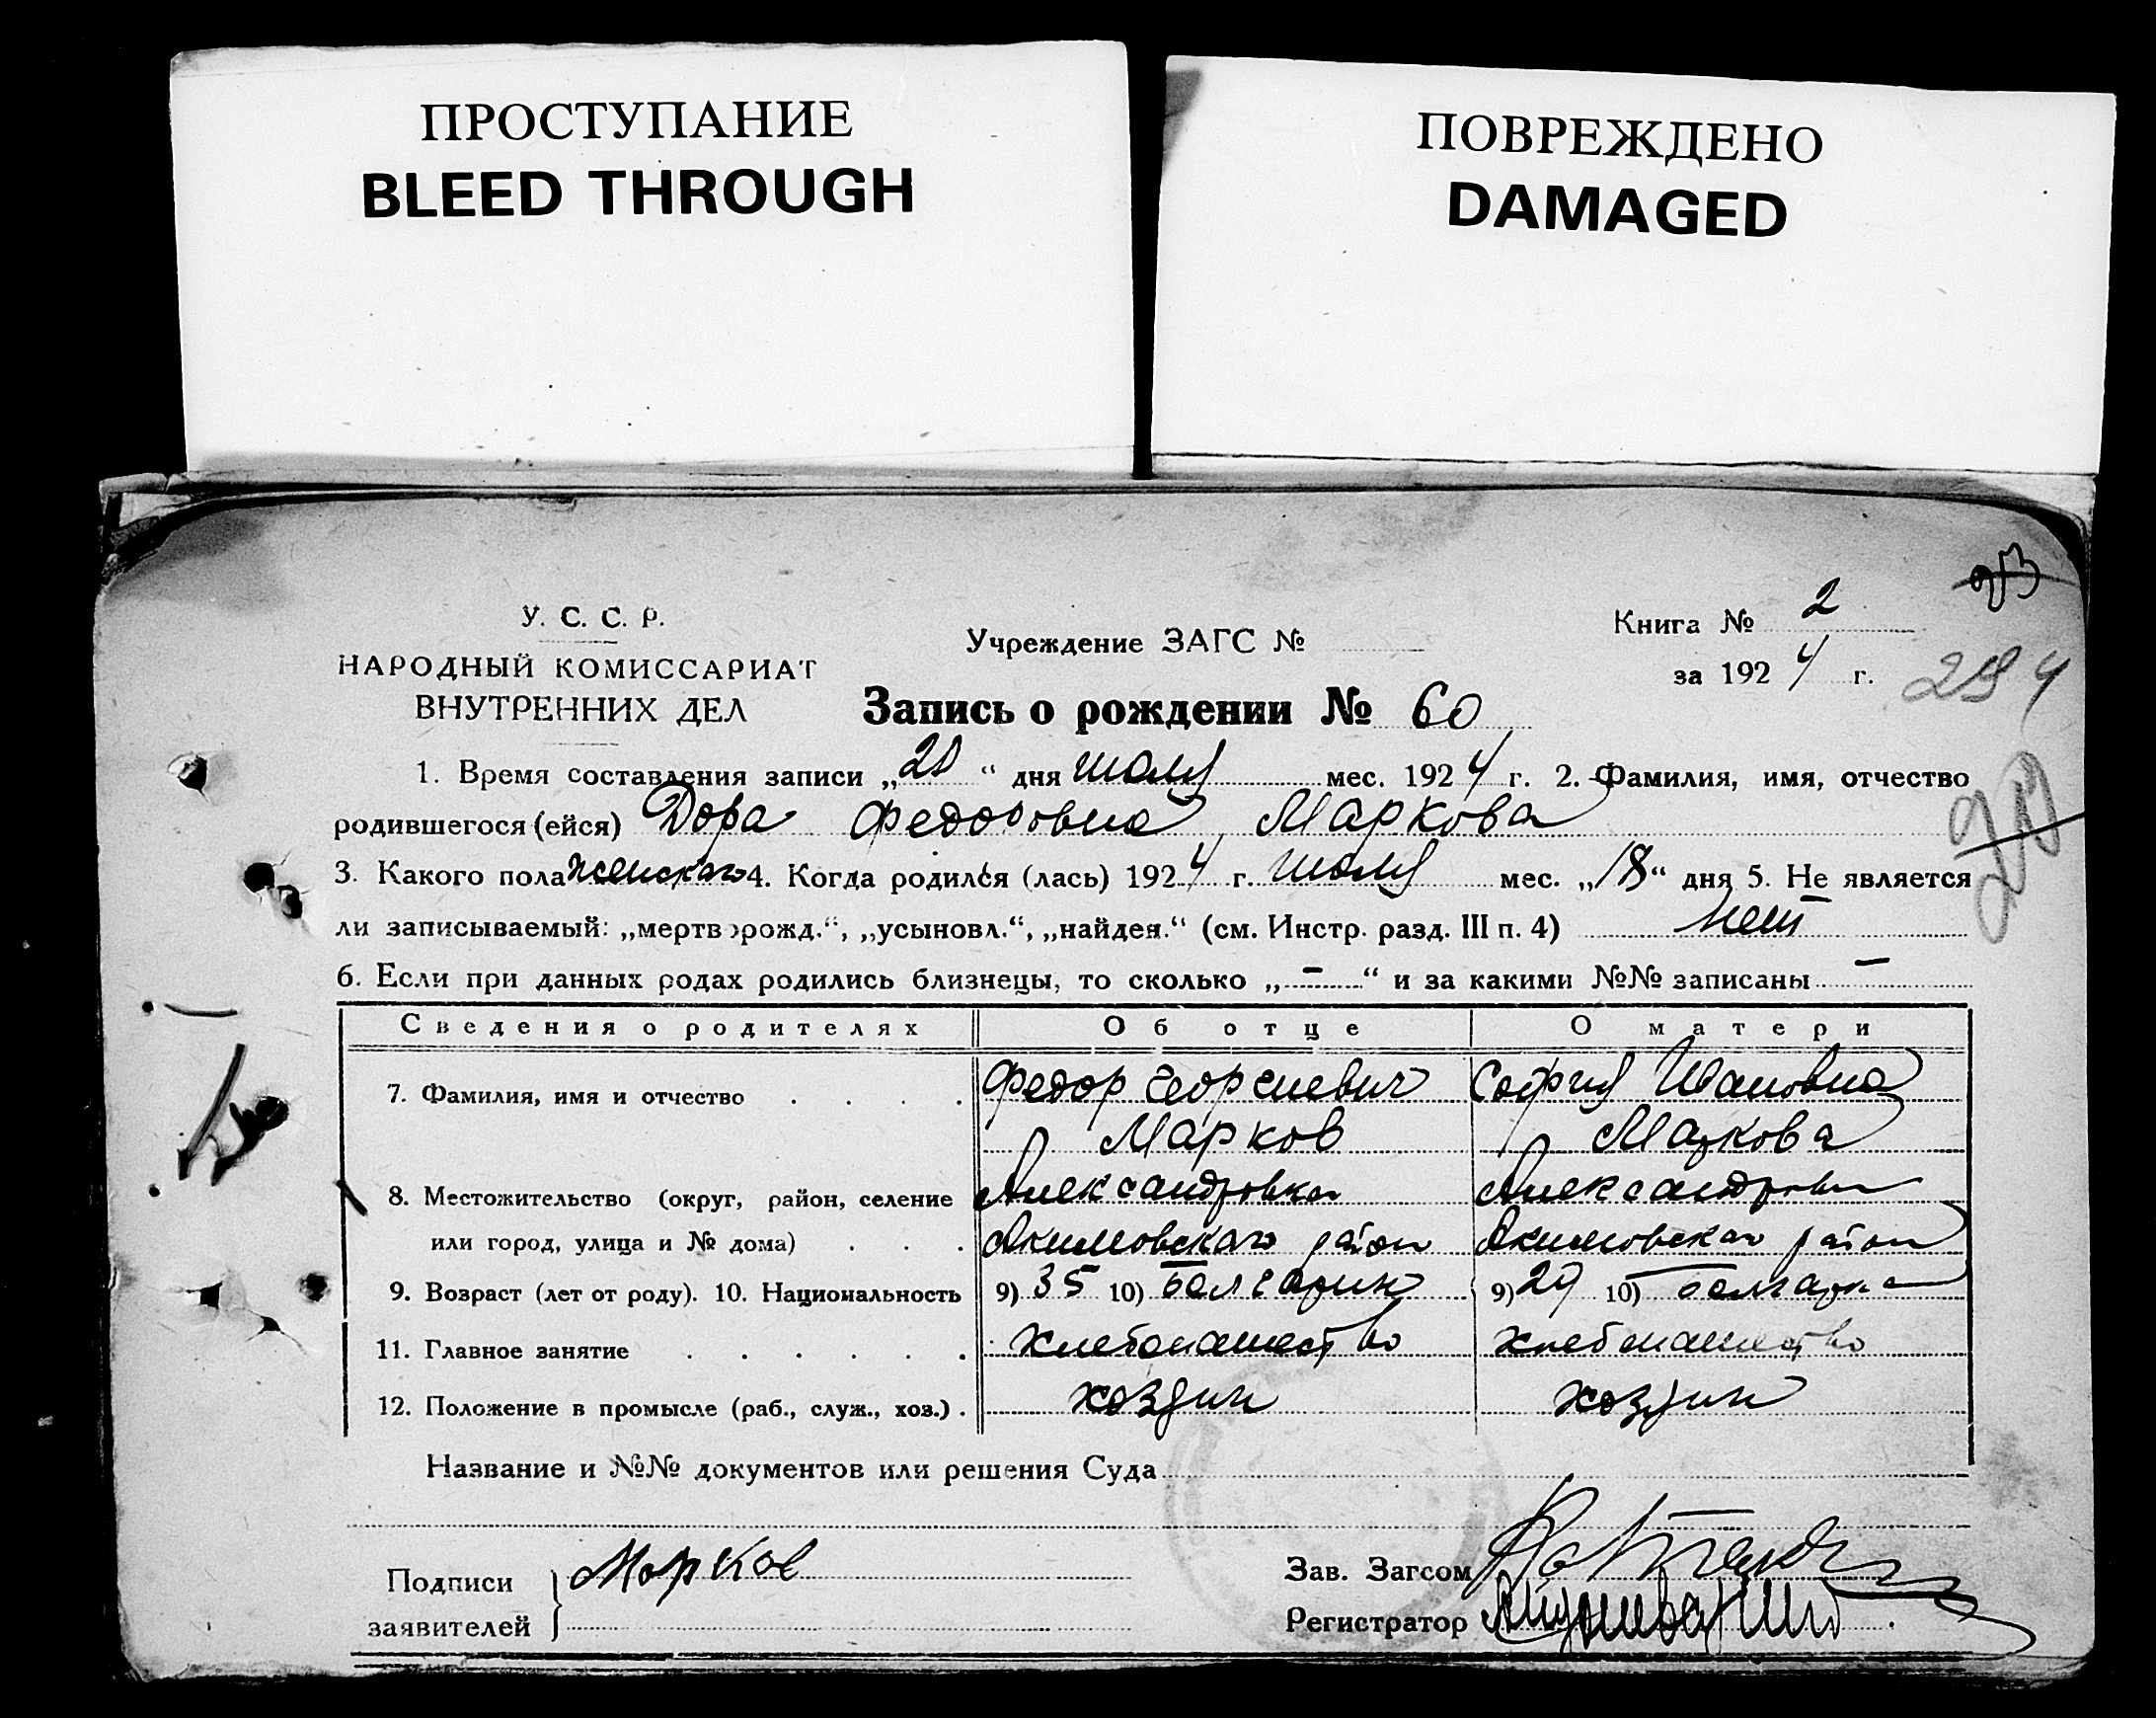 ПРОСТУПАНИЕ
BLEED THROUGH
ПОВРЕЖДЕНО
DAMAGED
У. С. С. Р.
НАРОДНЫЙ КОМИССАРИАТ
ВНУТРЕННИХ ДЕЛ
Учреждение ЗАГС №
Книга № 2
за 1924 г.
294
Запись о рождении № 60
1. Время составления записи „21“ дня июля мес. 1924 г. 2. Фамилия, имя, отчество
родившегося (ейся) Дора Федоровна, Маркова
3. Какого пола женскаго 4. Когда родился (лась) 1924 г. июля мес. „18“ дня 5. Не является
ли записываемый: „мертворожд.“, „усыновл.“, „найден.“ (см. Инстр. разд. III п. 4) нет
6. Если при данных родах родились близнецы, то сколько „—“ и за какими №№ записаны —
Сведения о родителях Об отце О матери
7. Фамилия, имя и отчество Федор Георгиевич София Ивановна
Марков Маркова
8. Местожительство (округ, район, селение Александровка Александровка
или город, улица и № дома) Акимовскаго район Акимовскаго район
9. Возраст (лет от роду). 10. Национальность 9) 35 10) болгарин 9) 29 10) болгарка
11. Главное занятие хлебопашество хлебопашество
12. Положение в промысле (раб., служ., хоз.) хозяин хозяин
Название и №№ документов или решения Суда
Подписи Марков
заявителей
Зав. Загсом
Регистратор